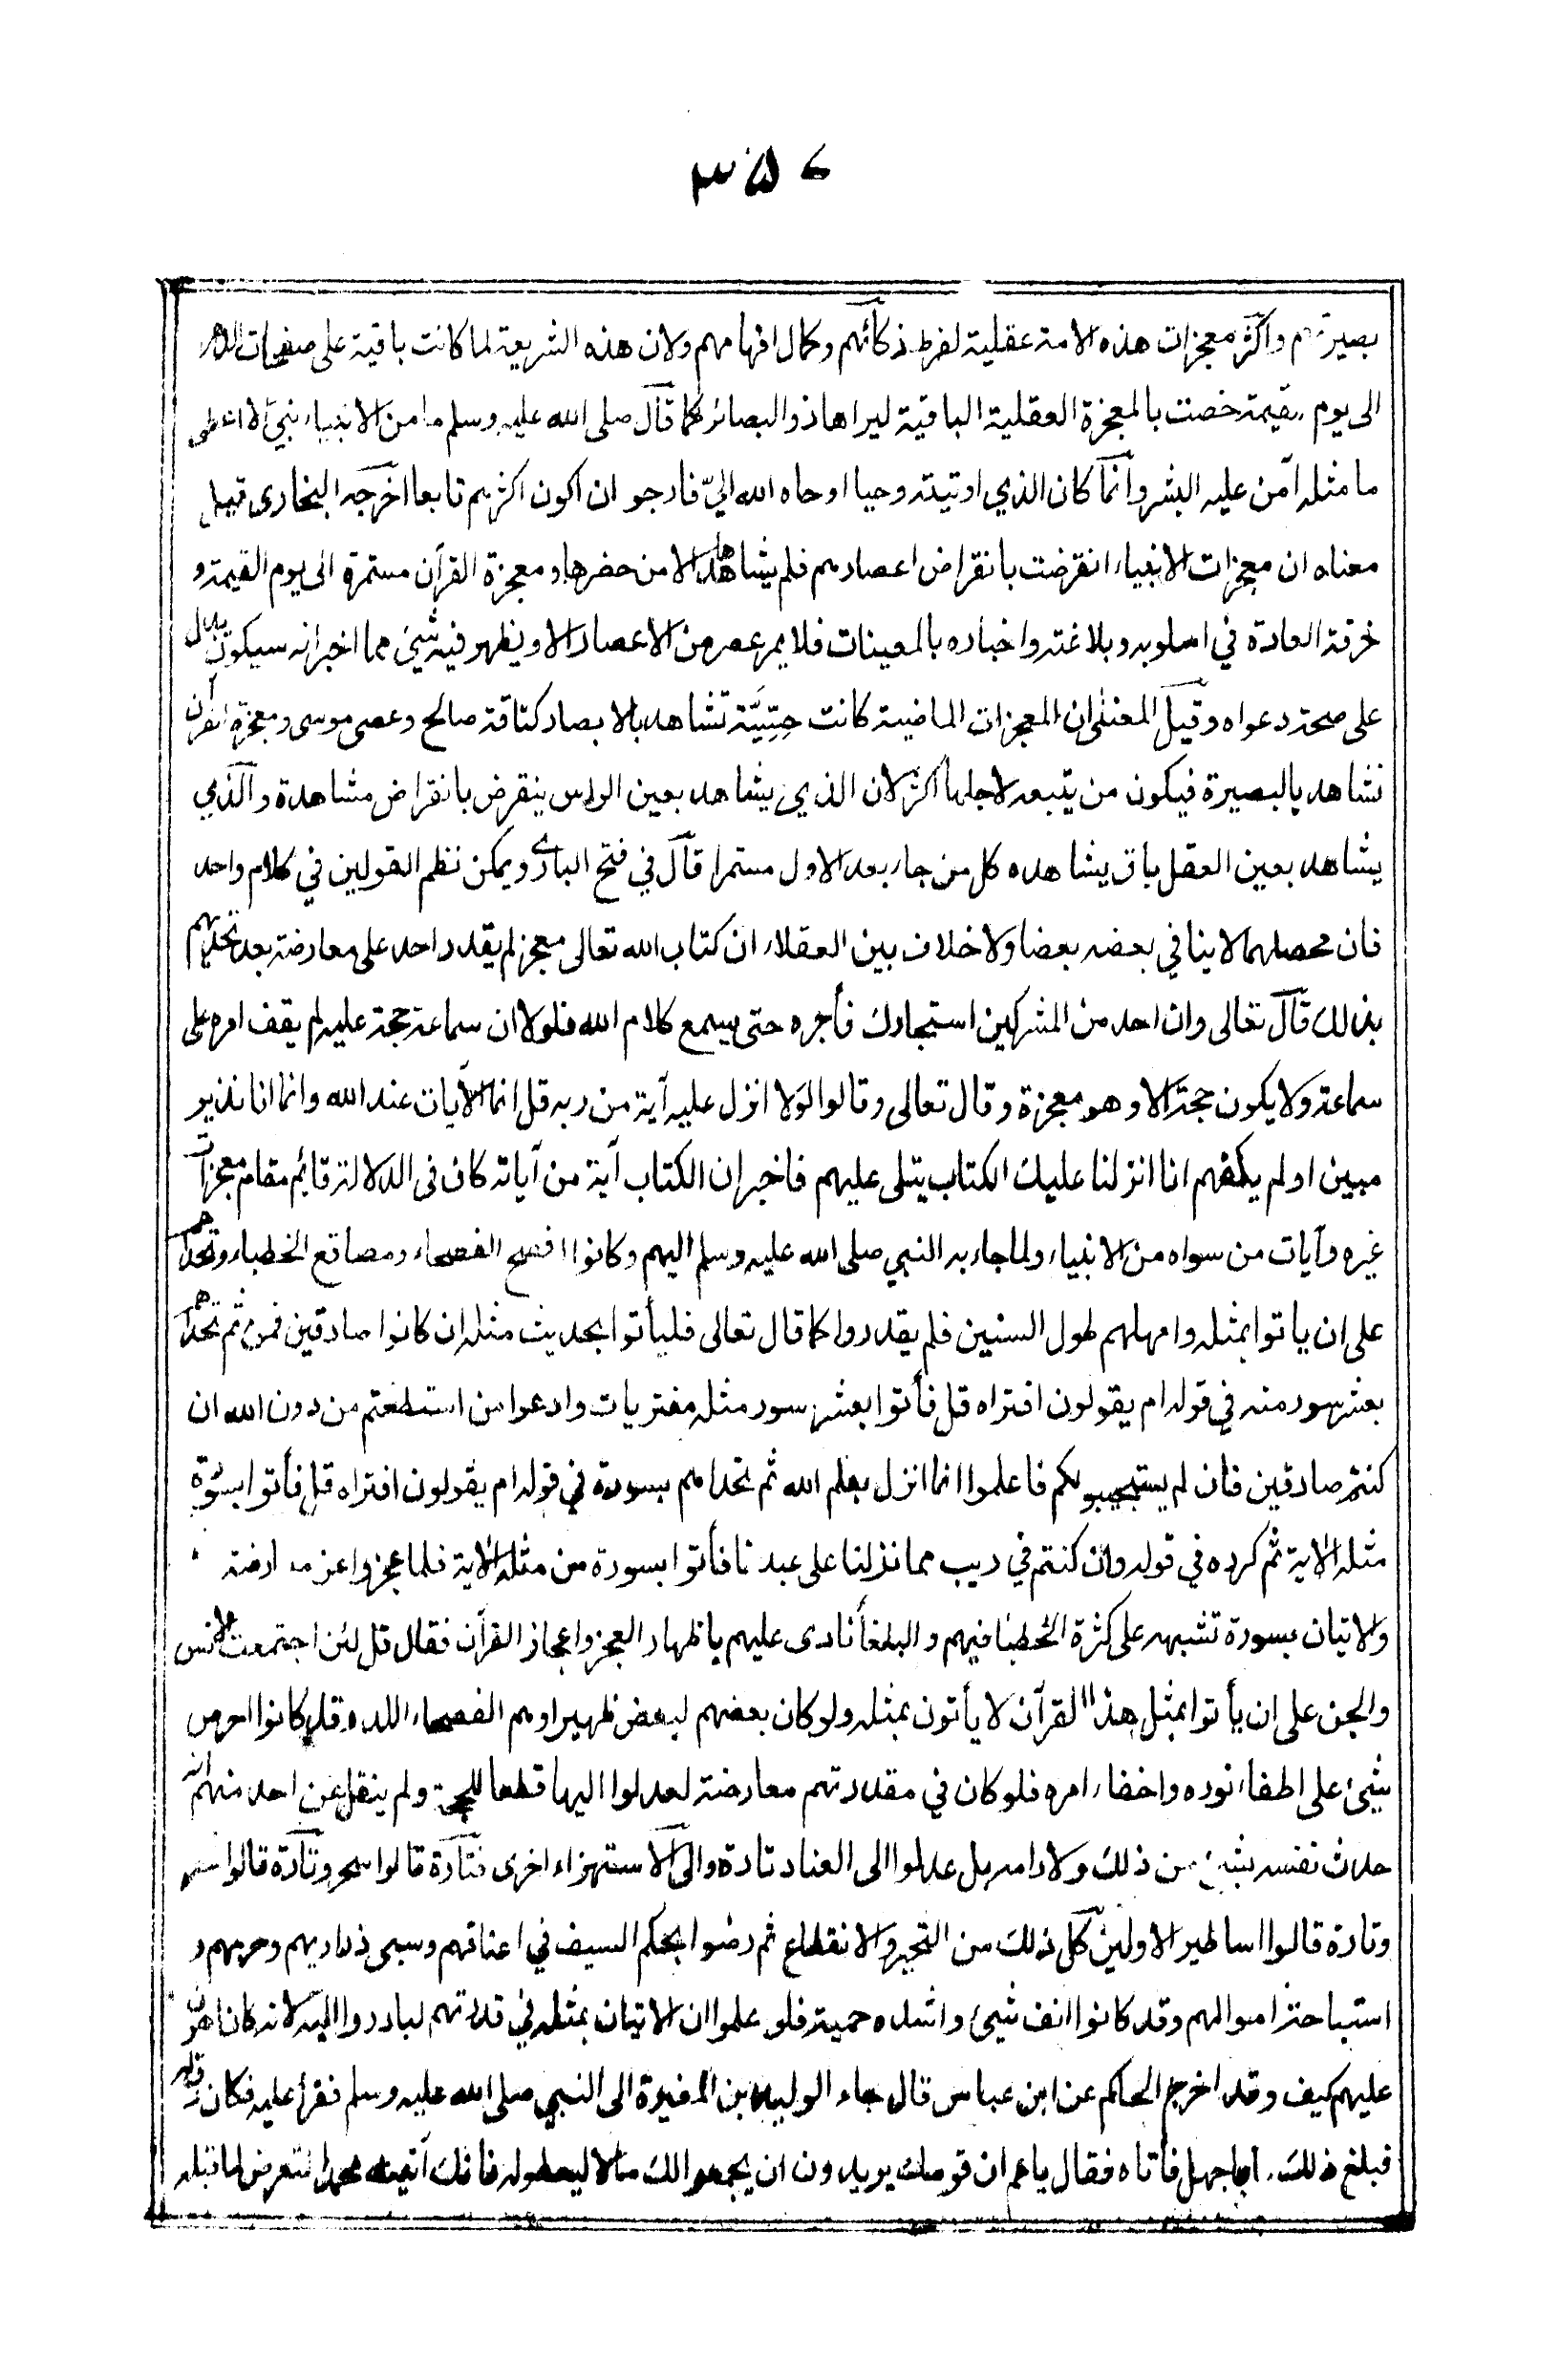 ٣٥٤
بصيرتهم واكثر معجزات هذه الامة عقلية لفرط ذكائهم وكمال افهامهم ولان هذه الشريعة لما كانت باقية على صفحات الدهر
الى يوم القيمة خصت بالمعجزة العقلية الباقية ليراها ذو البصائر كما قال صلى الله عليه وسلم ما من الانبياء نبي الا اعطى
ما مثله آمن عليه البشر وانما كان الذي اوتيته وحيا اوحاه الله اليّ فارجو ان اكون اكثرهم تابعا اخرجه البخارى قيل
معناه ان معجزات الانبياء انقرضت بانقراض اعصارهم فلم يشاهدها الا من حضرها ومعجزة القرآن مستمرة الى يوم القيمة و
خرقه العادة في اسلوبه وبلاغته واخباره بالمغيبات فلا يمر عصر من الاعصار الا ويظهر فيه شيئ مما اخبر انه سيكون يدل
على صحة دعواه وقيل المعنى ان المعجزات الماضية كانت حِسِّيَّة تشاهد بالابصار كناقة صالح وعصى موسى ومعجزة القرآن
تشاهد بالبصيرة فيكون من يتبعه لاجلها اكثر لان الذي يشاهد بعين الراس ينقرض بانقراض مشاهدة والذي
يشاهد بعين العقل باق يشاهده كل من جاء بعد الاول مستمرا قال في فتح البارى ويمكن نظم القولين في كلام واحد
فان محصلهما لا ينافي بعضه بعضا ولا خلاف بين العقلاء ان كتاب الله تعالى معجز لم يقدر احد على معارضة بعد تحديهم
بذلك قال تعالى وان احد من المشركين استجارك فأجره حتى يسمع كلام الله فلولا ان سماعه حجة عليه لم يقف امره على
سماعه ولا يكون حجة الا وهو معجزة وقال تعالى وقالوا لولا انزل عليه آية من ربه قل انما الآيات عند الله وانما انا نذير
مبين اولم يكفهم انا انزلنا عليك الكتاب يتلى عليهم فاخبر ان الكتاب آية من آياته كاف فى الدلالة قائم مقام معجزات
غيره وآيات من سواه من الانبياء ولما جاء به النبي صلى الله عليه وسلم اليهم وكانوا افصح الفصحاء ومصاقع الخطباء وتحداهم
على ان ياتوا بمثله وامهلهم طول السنين فلم يقدروا كما قال تعالى فليأتوا بحديث مثله ان كانوا صادقين فمن ثم تحداهم
بعشر سور منه في قوله ام يقولون افتراه قل فأتوا بعشر سور مثله مفتريات وادعوا من استطعتم من دون الله ان
كنتم صادقين فان لم يستجيبوا لكم فاعلموا انما انزل بعلم الله ثم تحداهم بسورة في قوله ام يقولون افتراه قل فأتوا بسورة
مثله الاية ثم كرره في قوله وان كنتم في ريب مما نزلنا على عبدنا فأتوا بسورة من مثله الاية فلما عجزوا عن معارضته
والاتيان بسورة تشبهه على كثرة الخطبا فيهم والبلغأ نادى عليهم باظهار العجز واعجاز القرآن فقال قل لئن اجتمعت الانس
والجن على ان يأتوا بمثل هذا القرآن لا يأتون بمثله ولو كان بعضهم لبعض ظهيرا وهم الفصحاء اللد وقد كانوا احرص
شيئ على اطفاء نوره واخفاء امره فلو كان في مقدرتهم معارضته لعدلوا اليها قطعا للحجة ولم ينقل عن احد منهم انه
حدث نفسه بشيئ من ذلك ولا رامه بل عدلوا الى العناد تارة والى الاستهزاء اخرى فتارة قالوا سحر وتارة قالوا شعر
وتارة قالوا اساطير الاولين كل ذلك من التحير والانقطاع ثم رضوا بحكم السيف في اعناقهم وسبى ذراريهم وحرمهم و
استباحة اموالهم وقد كانوا انف شيئ واشده حمية فلو علموا ان الاتيان بمثله في قدرتهم لبادروا اليه لانه كان اهون
عليهم كيف وقد اخرج الحاكم عن ابن عباس قال جاء الوليد بن المغيرة الى النبي صلى الله عليه وسلم فقرأ عليه فكان رق له
فبلغ ذلك ابا جهل فأتاه فقال يا عم ان قومك يريدون ان يجمعوا لك مالا ليعطوله فانك أتيت محمدا لتعرض لما قبله